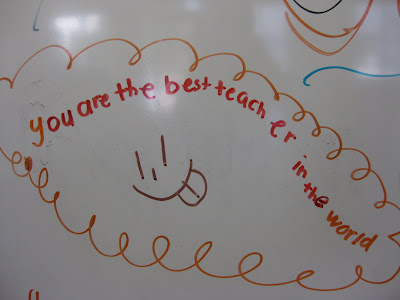 you are the best teacher in the world